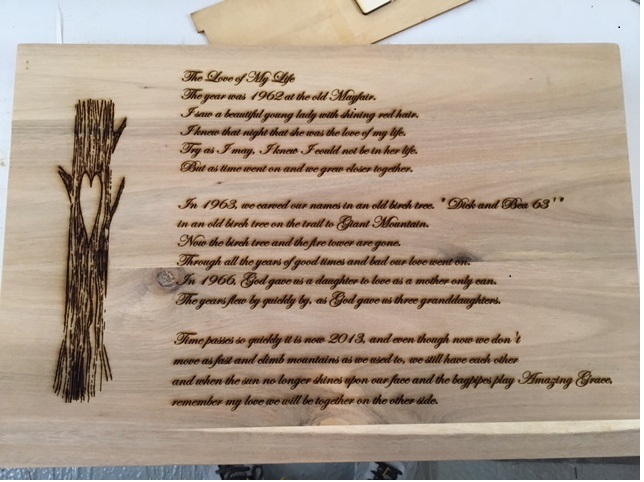 The Love of My Life
The year was 1962 at the old Mayfair.
I saw a beautiful young lady with shining red hair.
I knew that night that she was the love of my life.
Try as I may, I knew I could not be in her life.
But as time went on and we grew closer together.
In 1963, we carved our names in an old birch tree. "Dick and Bea 63'"
in an old birch tree on the trail to Giant Mountain.
Now the birch tree and the fire tower are gone.
Through all the years of good times and bad our love went on.
In 1966, God gave us a daughter to love as a mother only can.
The years flew by quickly by, as God gave us three granddaughters.
Time passes so quickly it is now 2013, and even though now we don't
move as fast and climb mountains as we used to, we still have each other
and when the sun no longer shines upon our face and the bagpipes play Amazing Grace,
remember my love we will be together on the other side.